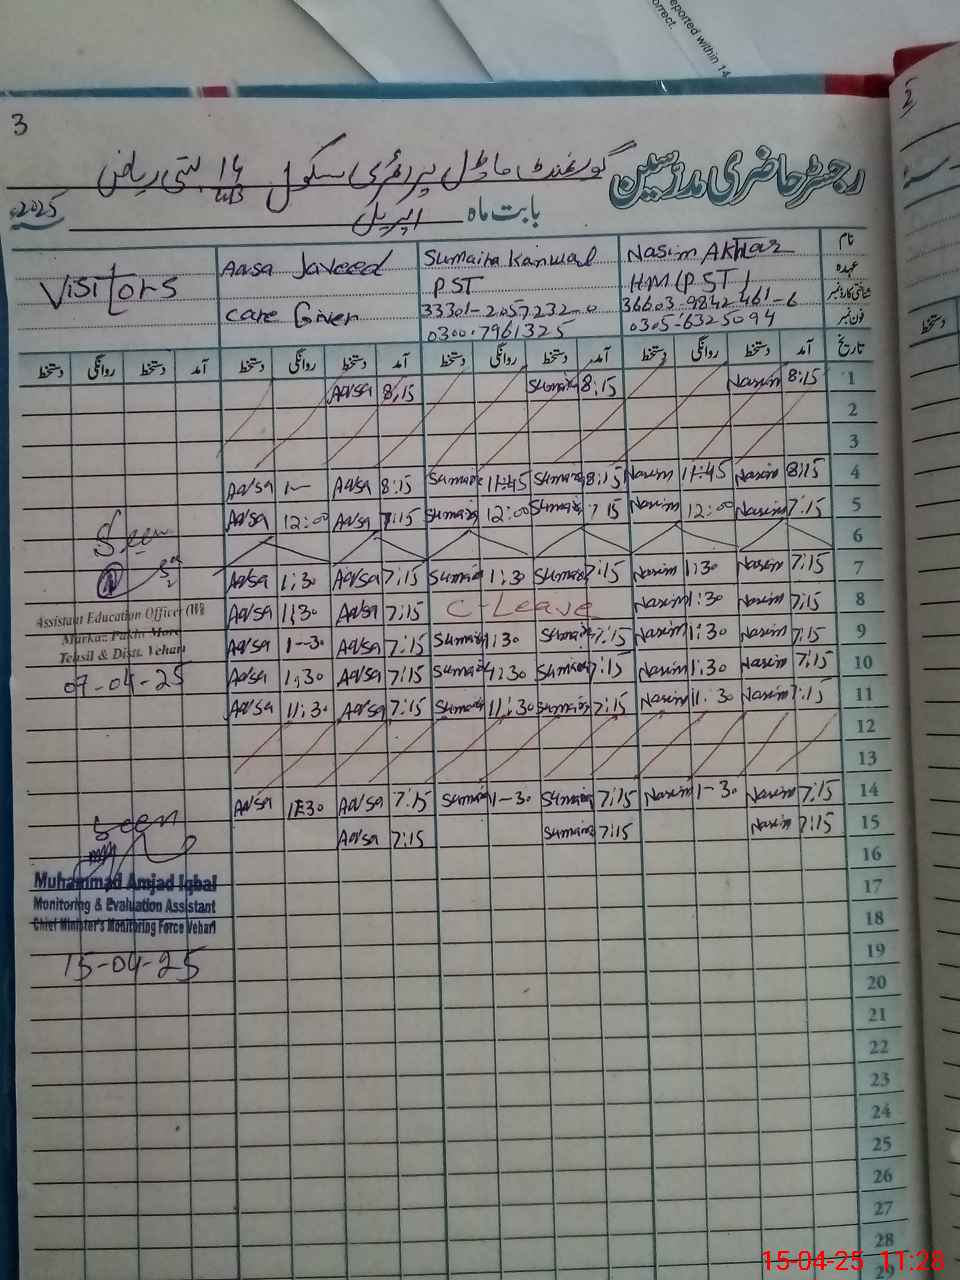 reported within 14
orrect.
3
2
رجسٹر حاضری مدرسین گورنمنٹ ماڈل پرائمری سکول 14/WB بستی ریاض
بابت ماہ اپریل 2025
نام Nasim Akhtar Sumaira Kanwal Aasa Javeed Visitors
عہدہ HM (PST) PST
شناختی کارڈ نمبر 36603-9842461-6 33301-2057232-0 Care Giver
فون نمبر 0305-6325094 0300-7961325
تاریخ آمد دستخط روانگی دستخط آمد دستخط روانگی دستخط آمد دستخط روانگی دستخط آمد دستخط روانگی دستخط
1 8:15 Nasim 8:15 Sumaira 8:15 Aasa
2
3
4 8:15 Nasim 11:45 Nasim 8:15 Sumaira 11:45 Sumaira 8:15 Aasa 1- Aasa
5 7:15 Nasim 12:00 Nasim 7 15 Sumaira 12:00 Sumaira 7:15 Aasa 12:00 Aasa
6
7 7:15 Nasim 1:30 Nasim 7:15 Sumaira 1:30 Sumaira 7:15 Aasa 1:30 Aasa
8 7:15 Nasim 1:30 Nasim C-Leave 7:15 Aasa 1:30 Aasa
9 7:15 Nasim 1:30 Nasim 7:15 Sumaira 1:30 Sumaira 7:15 Aasa 1-30 Aasa
10 7:15 Nasim 1:30 Nasim 7:15 Sumaira 1:30 Sumaira 7:15 Aasa 1:30 Aasa
11 7:15 Nasim 11:30 Nasim 7:15 Sumaira 11:30 Sumaira 7:15 Aasa 11:30 Aasa
12
13
14 7:15 Nasim 1-30 Nasim 7:15 Sumaira 1-30 Sumaira 7:15 Aasa 1:30 Aasa
15 7:15 Nasim 7:15 Sumaira 7:15 Aasa
16
17
18
19
20
21
22
23
24
25
26
27
28
29
Seen
Assistant Education Officer (W)
Markaz Pakhi More
Tehsil & Distt. Vehari
07-04-25
Seen
Muhammad Amjad Iqbal
Monitoring & Evaluation Assistant
Chief Minister's Monitoring Force Vehari
15-04-25
دستخط
15-04-25 11:28